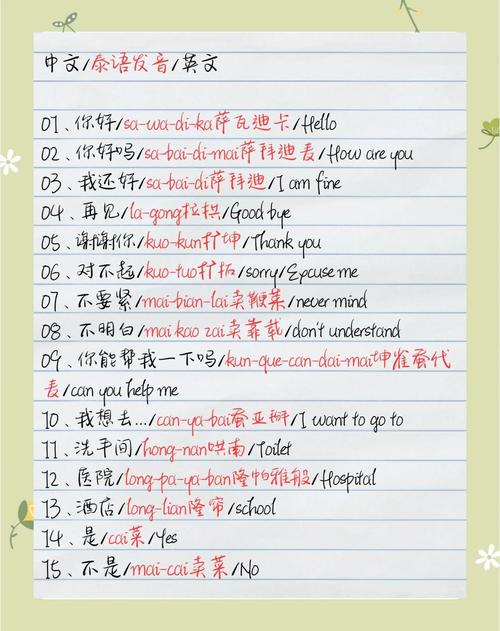 中文/泰语发音/英文
01、你好/sa-wa-di-ka萨瓦迪卡/Hello
02、你好吗/sa-bai-di-mai萨拜迪麦/How are you
03、我还好/sa-bai-di萨拜迪/I am fine
04、再见/la-gong拉拱/Good bye
05、谢谢你/kuo-kun扩坤/Thank you
06、对不起/kuo-tuo扩拓/sorry/Epcuse me
07、不要紧/mai-bian-lai卖鞭莱/never mind
08、不明白/mai kao zai卖靠载/don't understand
09、你能帮我一下吗/kun-que-can-dai-mai坤雀蚕代
麦/can you help me
10、我想去.../can-ya-bai蚕亚掰/I want to go to
11、洗手间/hong-nan哄南/Toilet
12、医院/long-pa-ya-ban隆帕雅般/Hospital
13、酒店/long-lian隆帘/school
14、是/cai菜/Yes
15、不是/mai-cai卖菜/No